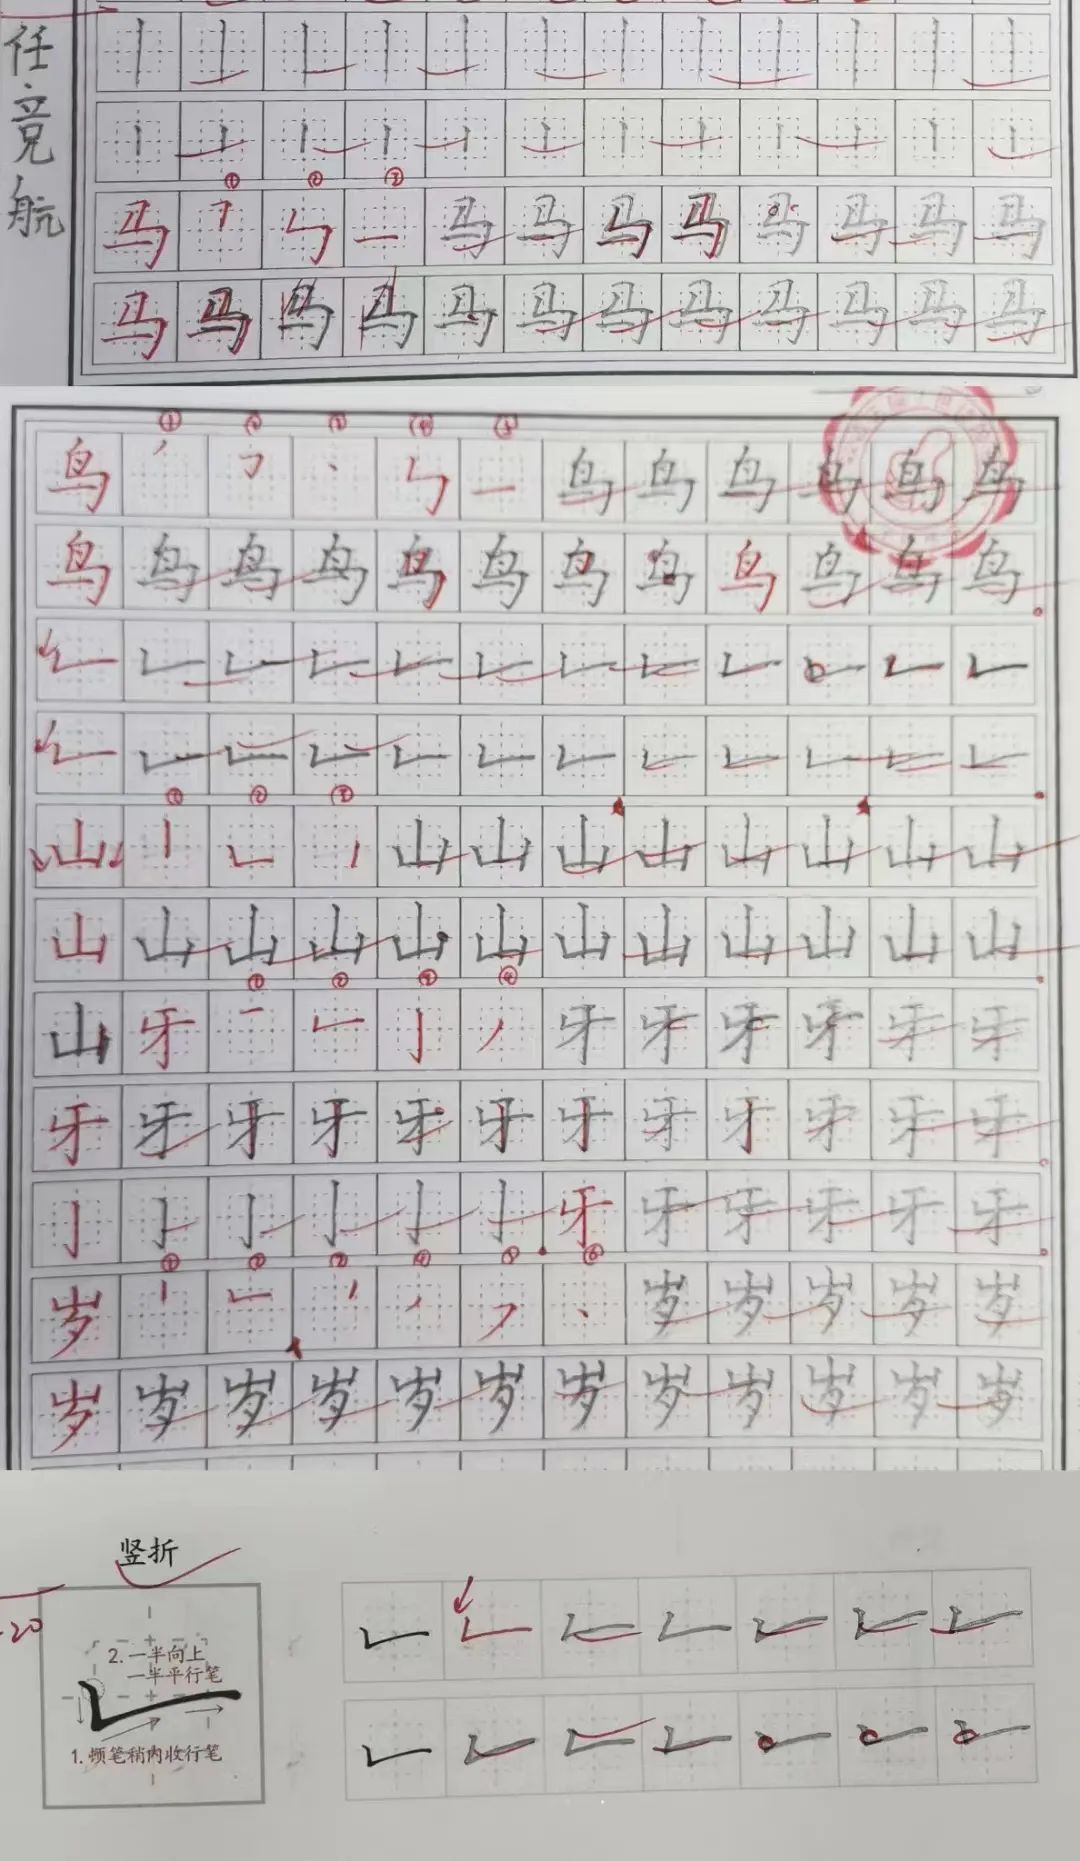 任竞航
① ② ③
马 马 马 马 马 马 马 马 马
马 马 马 马 马 马 马 马 马 马 马 马
① ② ③ ④ ⑤
鸟 鸟 鸟 鸟 鸟 鸟 鸟
鸟 鸟 鸟 鸟 鸟 鸟 鸟 鸟 鸟 鸟 鸟 鸟
① ② ③
山 山 山 山 山 山 山 山 山
山 山 山 山 山 山 山 山 山 山 山 山
① ② ③ ④
山 牙 牙 牙 牙 牙 牙 牙
牙 牙 牙 牙 牙 牙 牙 牙 牙 牙 牙 牙
牙 牙 牙 牙 牙 牙
① ② ③ ④ ⑤ ⑥
岁 岁 岁 岁 岁 岁
岁 岁 岁 岁 岁 岁 岁 岁 岁 岁 岁 岁
竖折
20
2.一半向上
一半平行笔
1.顿笔稍内收行笔